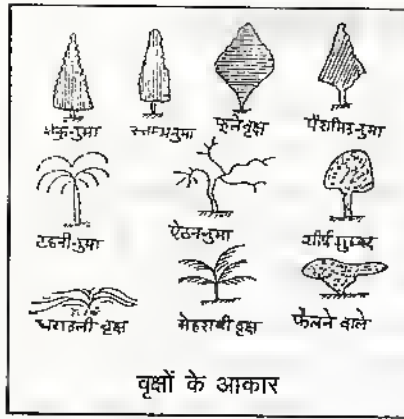 शंकुनुमा स्तम्भनुमा फूलेवृक्ष पिरामिडनुमा
टहनीनुमा ऐठननुमा शीर्ष गुम्बद
मेहराबी वृक्ष फैलने वाले
वृक्षों के आकार